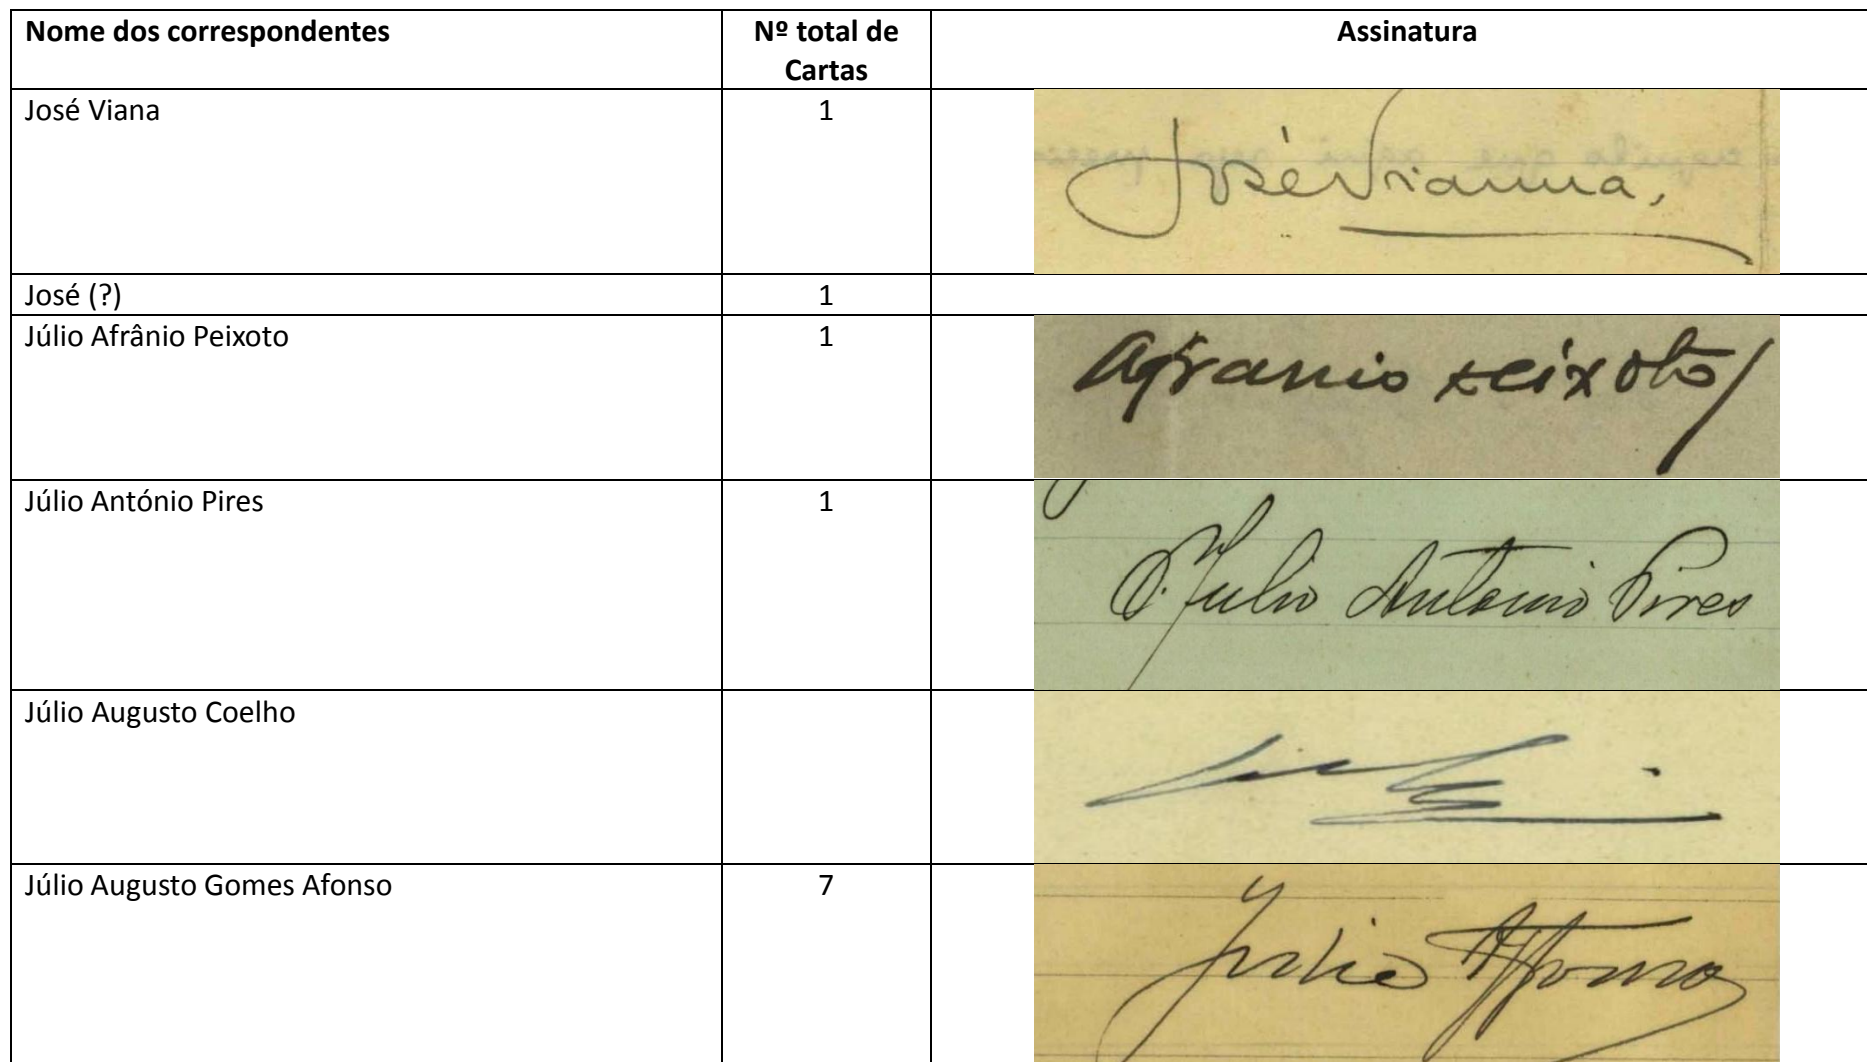 Nome dos correspondentes
Nº total de
Cartas
Assinatura
José Viana
1
José Vianna,
José (?)
1
Júlio Afrânio Peixoto
1
Afranio Peixoto
Júlio António Pires
1
Julio Antonio Pires
Júlio Augusto Coelho
Júlio Augusto Gomes Afonso
7
Júlio Afonso